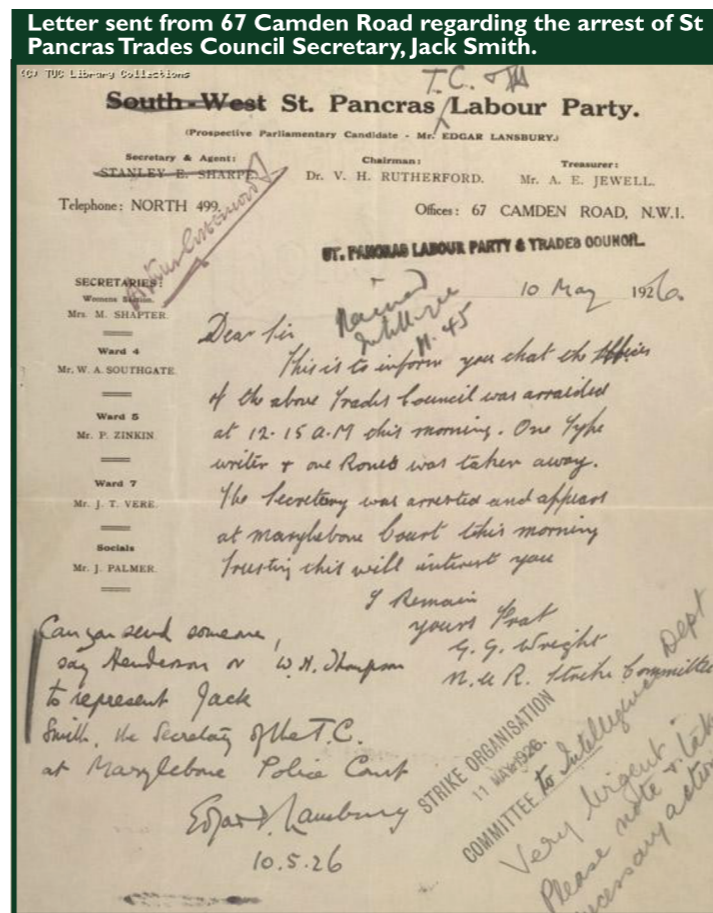 Letter sent from 67 Camden Road regarding the arrest of St
Pancras Trades Council Secretary, Jack Smith.
(C) TUC Library Collections
T.C.
South-West St. Pancras Labour Party.
(Prospective Parliamentary Candidate - Mr. EDGAR LANSBURY.)
Secretary & Agent:
STANLEY E. SHARPE.
Chairman:
Dr. V. H. RUTHERFORD.
Treasurer:
Mr. A. E. JEWELL.
Telephone: NORTH 499.
Offices: 67 CAMDEN ROAD, N.W.1.
ST. PANCRAS LABOUR PARTY & TRADES COUNCIL.
10 May 1926.
SECRETARIES:
Womens Section.
Mrs. M. SHAPTER.
Ward 4
Mr. W. A. SOUTHGATE.
Ward 5
Mr. P. ZINKIN.
Ward 7
Mr. J. T. VERE.
Socials
Mr. J. PALMER.
Intelligence
Dear Sir
This is to inform you that the offices
of the above Trades Council was arraided
at 12-15 A.M this morning. One Type
writer & one Roneo was taken away.
The Secretary was arrested and appears
at Marylebone Court this morning
Trusting this will interest you
I Remain
yours Frat
G. G. Wright
N.U.R. Strike Committee
Can you send someone,
say Henderson or W. H. Thompson
to represent Jack
Smith, the Secretary of the T.C.
at Marylebone Police Court
Edgar Lansbury
10.5.26
STRIKE ORGANISATION
11 MAY 1926.
COMMITTEE
to Intelligence Dept
Very Urgent
Please note & take
necessary action